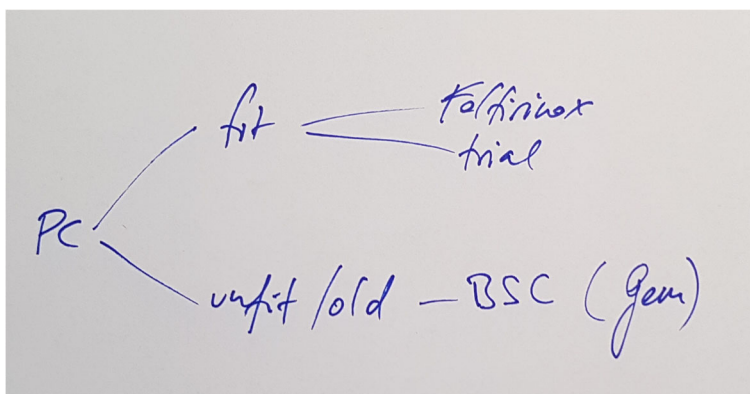 fit
Folfirinox
trial
PC
unfit/old – BSC (Gem)